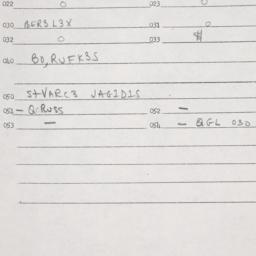 022 0 023 0
030 BER3L3X 031 0
032 0 033 $
040 BO,RUFK3S
050 StVARC3 JAGIDIS
051 - Q:RUSS 052 -
053 - 054 - QGL 030